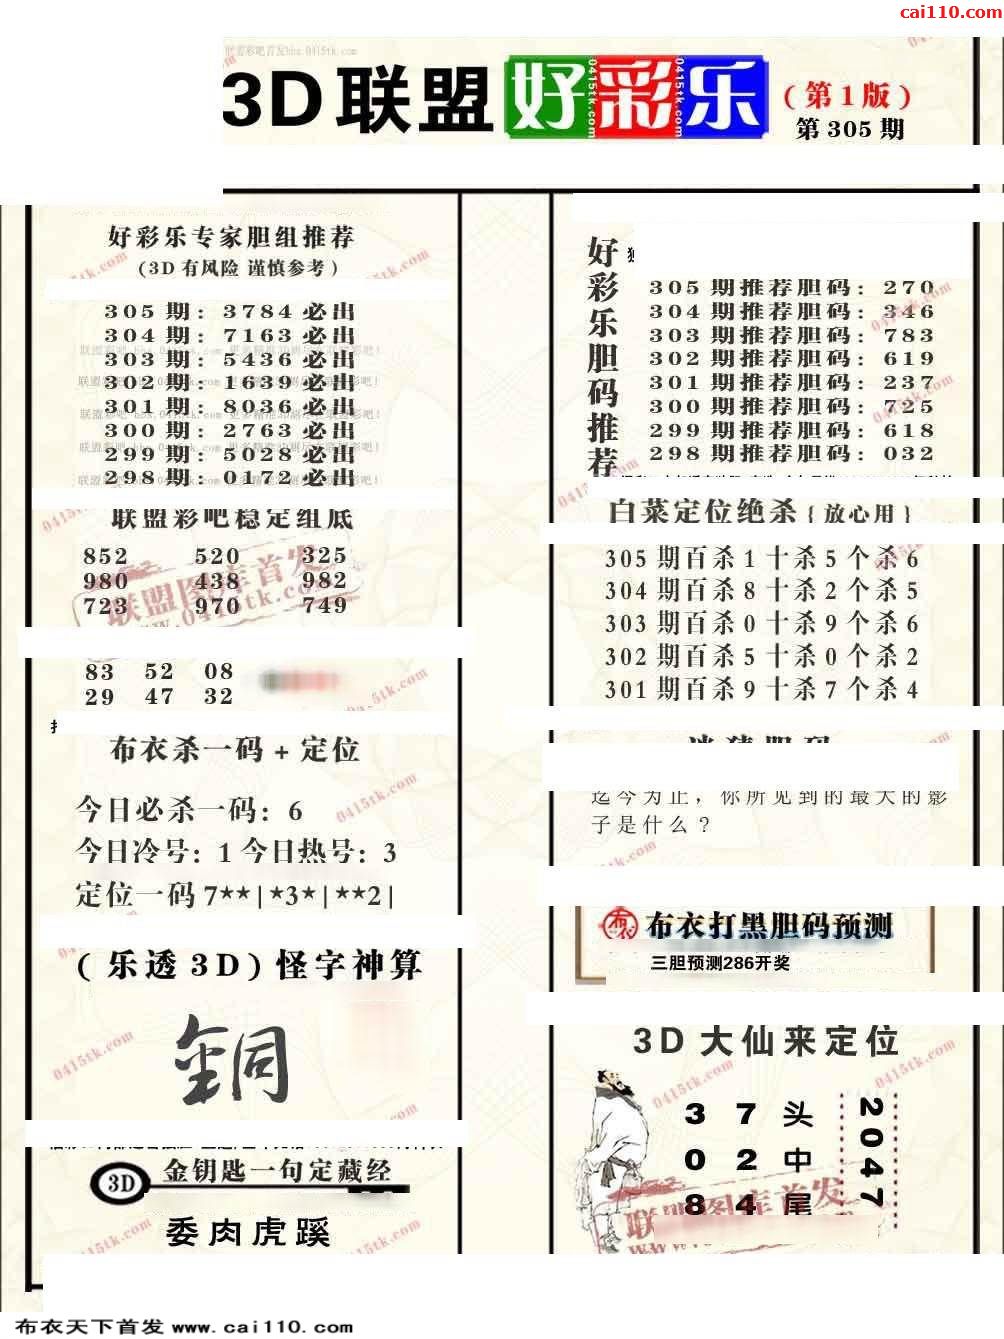 cai110.com
3D联盟好彩乐
(第1版)
第305期
好彩乐专家胆组推荐
(3D有风险 谨慎参考)
305期: 3784必出
304期: 7163必出
303期: 5436必出
302期: 1639必出
301期: 8036必出
300期: 2763必出
299期: 5028必出
298期: 0172必出
联盟彩吧稳定组底
852 520 325
980 438 982
723 970 749
83 52 08
29 47 32
布衣杀一码+定位
今日必杀一码: 6
今日冷号: 1 今日热号: 3
定位一码 7**|*3*|**2|
(乐透3D)怪字神算
銅
3D 金钥匙一句定藏经
委肉虎蹊
好彩乐胆码推荐
305期推荐胆码: 270
304期推荐胆码: 346
303期推荐胆码: 783
302期推荐胆码: 619
301期推荐胆码: 237
300期推荐胆码: 725
299期推荐胆码: 618
298期推荐胆码: 032
白菜定位绝杀{放心用}
305期百杀1十杀5个杀6
304期百杀8十杀2个杀5
303期百杀0十杀9个杀6
302期百杀5十杀0个杀2
301期百杀9十杀7个杀4
迄今为止，你所见到的最大的影
子是什么?
布衣打黑胆码预测
三胆预测286开奖
3D大仙来定位
3 7头
0 2中
8 4尾
2047
联盟图库首发
0415tk.com
布衣天下首发 www.cai110.com